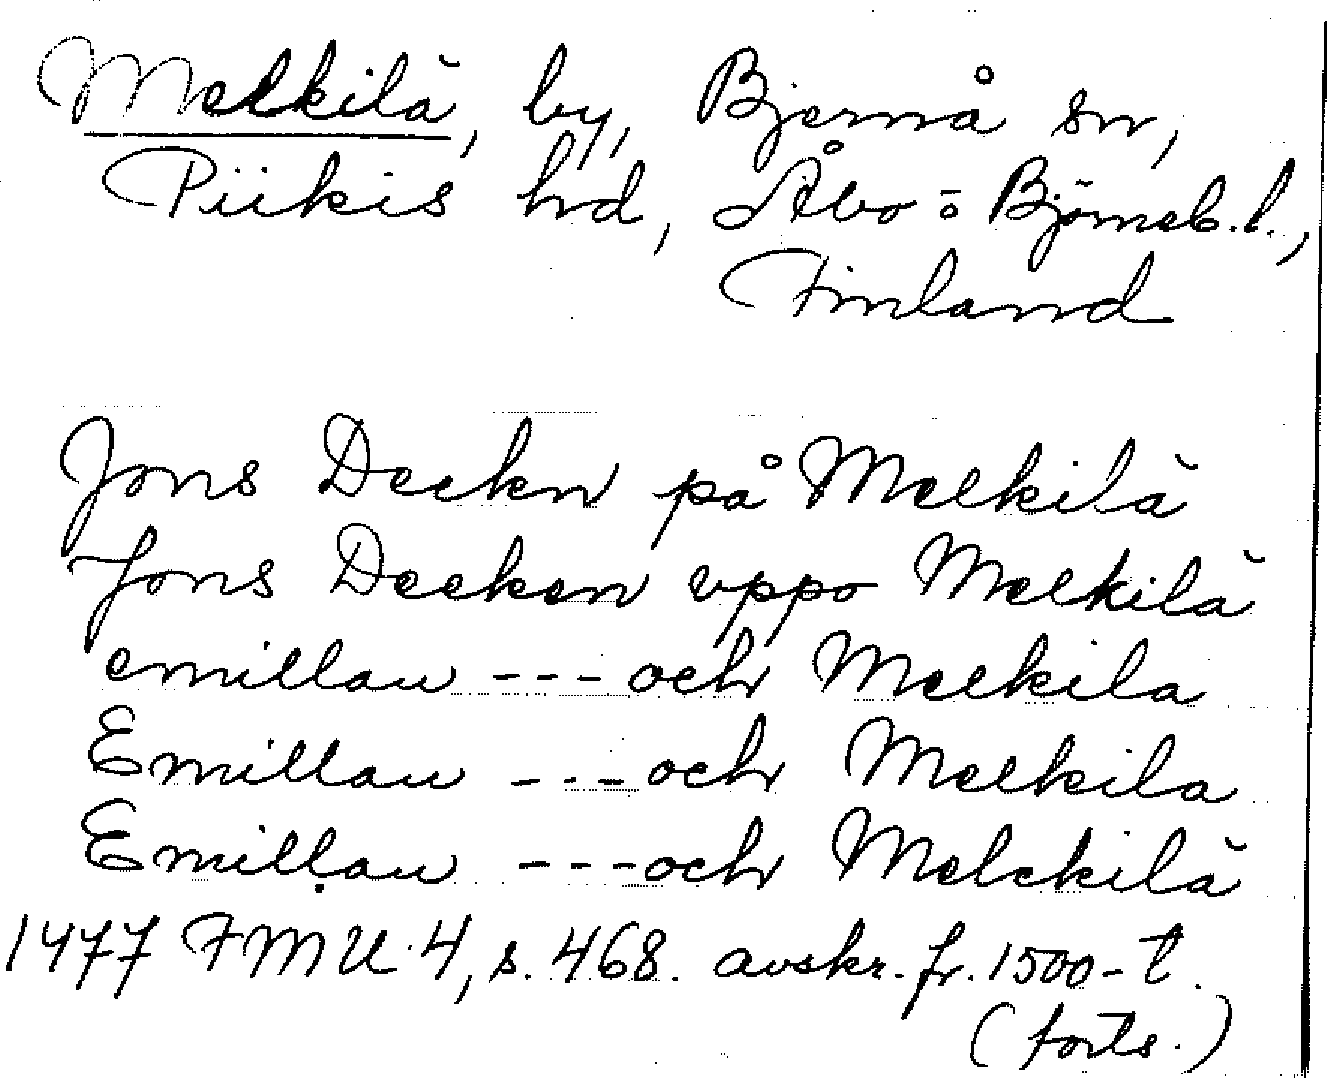 Melkilä, by, Bjernå sn,
Piikis hd, Åbo = Björneb. l.,
Finland
Jons Deekn på Melkilä
Jons Deeken uppo Melkilä
emillan --- och Melkila
Emillan --- och Melkila
Emillan --- och Melckilä
1477 FMU 4, s. 468. avskr. fr. 1500-t.
(forts.)